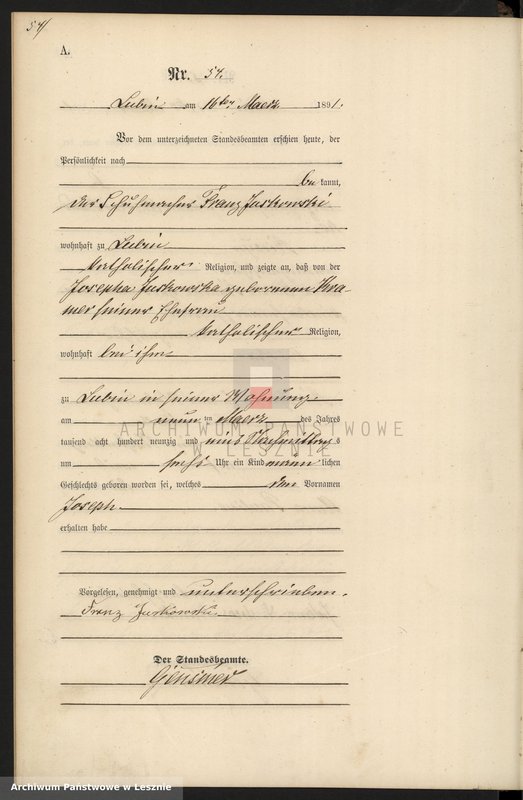 57
A.
Nr. 57.
Lubin am 16ten Maerz 1891.
Vor dem unterzeichneten Standesbeamten erschien heute, der
Persönlichkeit nach
be kannt,
der Schuhmacher Franz Juskowski
wohnhaft zu Lubin
katholischer Religion, und zeigte an, daß von der
Josepha Juskowska geborenen Kra-
mer seiner Ehefrau
katholischer Religion,
wohnhaft bei ihm
zu Lubin in seiner Wohnung.
am neun ten Maerz des Jahres
tausend acht hundert neunzig und eins Nachmittags
um sechs Uhr ein Kind männ lichen
Geschlechts geboren worden sei, welches den Vornamen
Joseph
erhalten habe
Vorgelesen, genehmigt und unterschrieben.
Franz Juskowski
Der Standesbeamte.
ARCHIWUM PAŃSTWOWE
W LESZNIE
Archiwum Państwowe w Lesznie